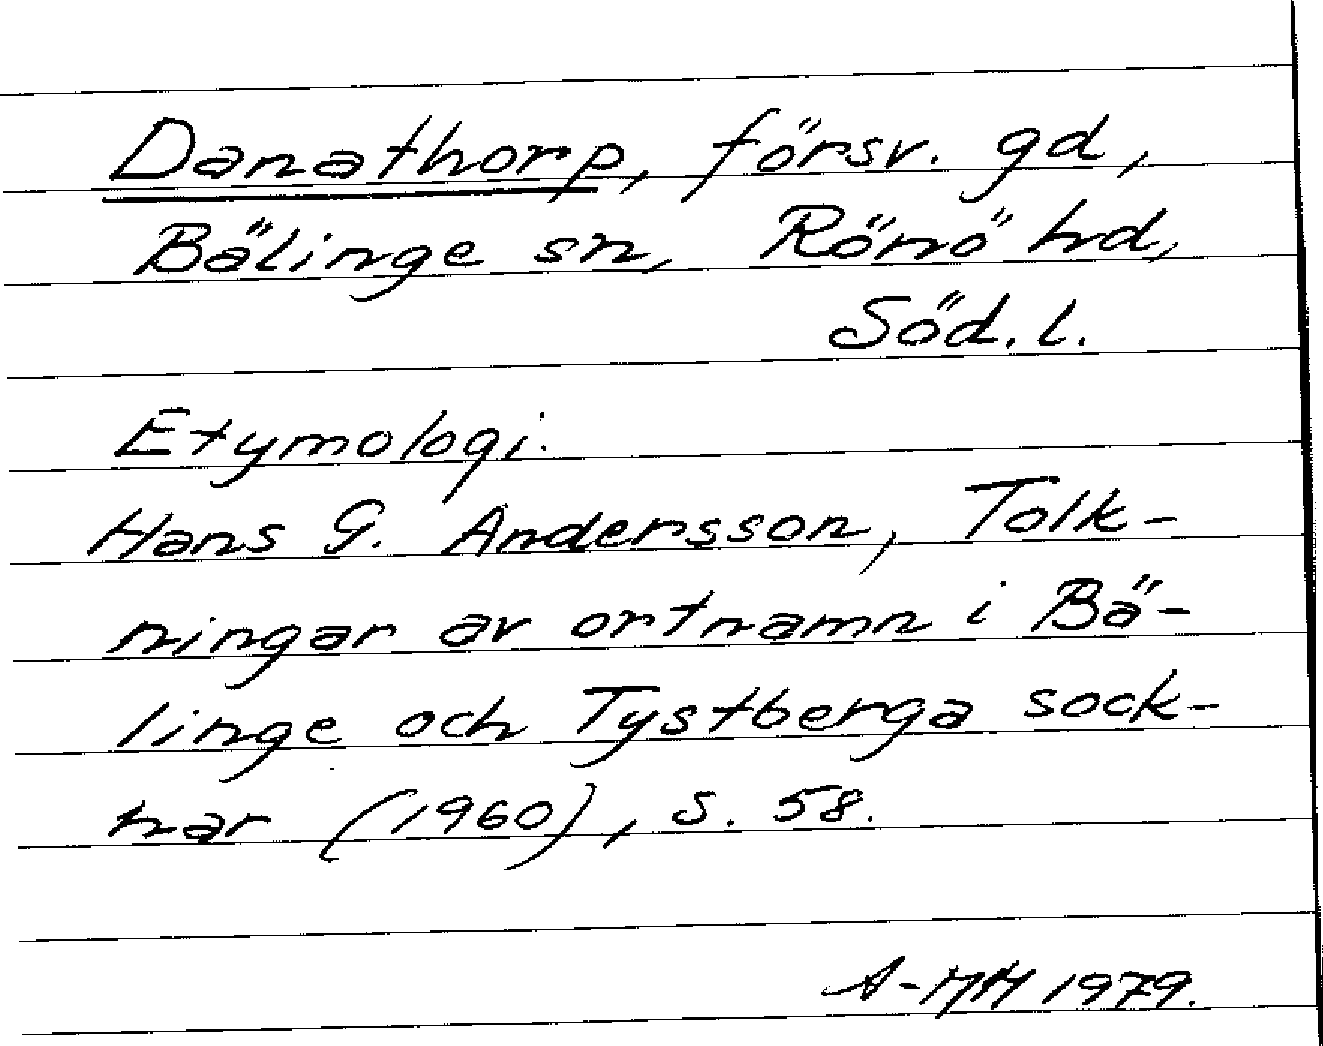 Danathorp, försv. gd,
Bälinge sn, Rönö hd,
Söd. l.
Etymologi.
Hans G. Andersson, Tolk-
ningar av ortnamn i Bä-
linge och Tystberga sock-
nar (1960), s. 58.
1979.